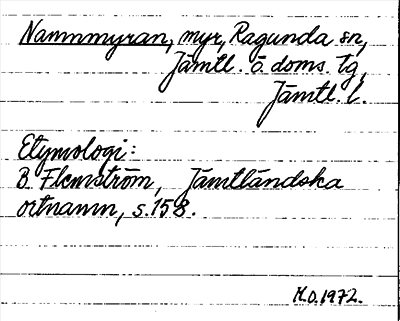 Nammmyran, myr, Ragunda sn,
Jämtl. ö. doms. tg,
Jämtl. l.
Etymologi:
B. Flemström, Jämtländska
ortnamn, s. 158.
M.O. 1972.